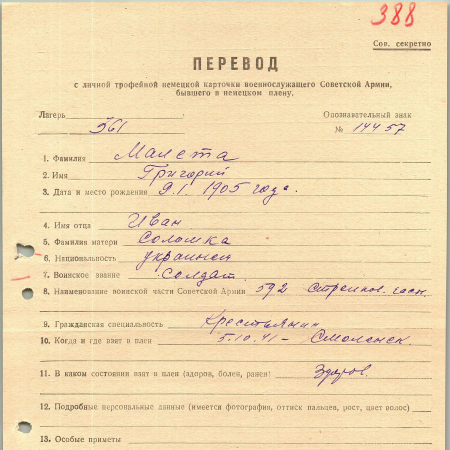 388
Сов. секретно
ПЕРЕВОД
с личной трофейной немецкой карточки военнослужащего Советской Армии,
бывшего в немецком плену.
Лагерь Опознавательный знак
361 № 14457
1. Фамилия Малета
2. Имя Григорий
3. Дата и место рождения 9.1.1905 года.
4. Имя отца Иван
5. Фамилия матери Соломка
6. Национальность украинец
7. Воинское звание Солдат.
8. Наименование воинской части Советской Армии 592
9. Гражданская специальность Крестьянин
10. Когда и где взят в плен 5.10.41 – Смоленск.
11. В каком состоянии взят в плен (здоров, болен, ранен) Здоров.
12. Подробные персональные данные (имеется фотография, оттиск пальцев, рост, цвет волос)
13. Особые приметы